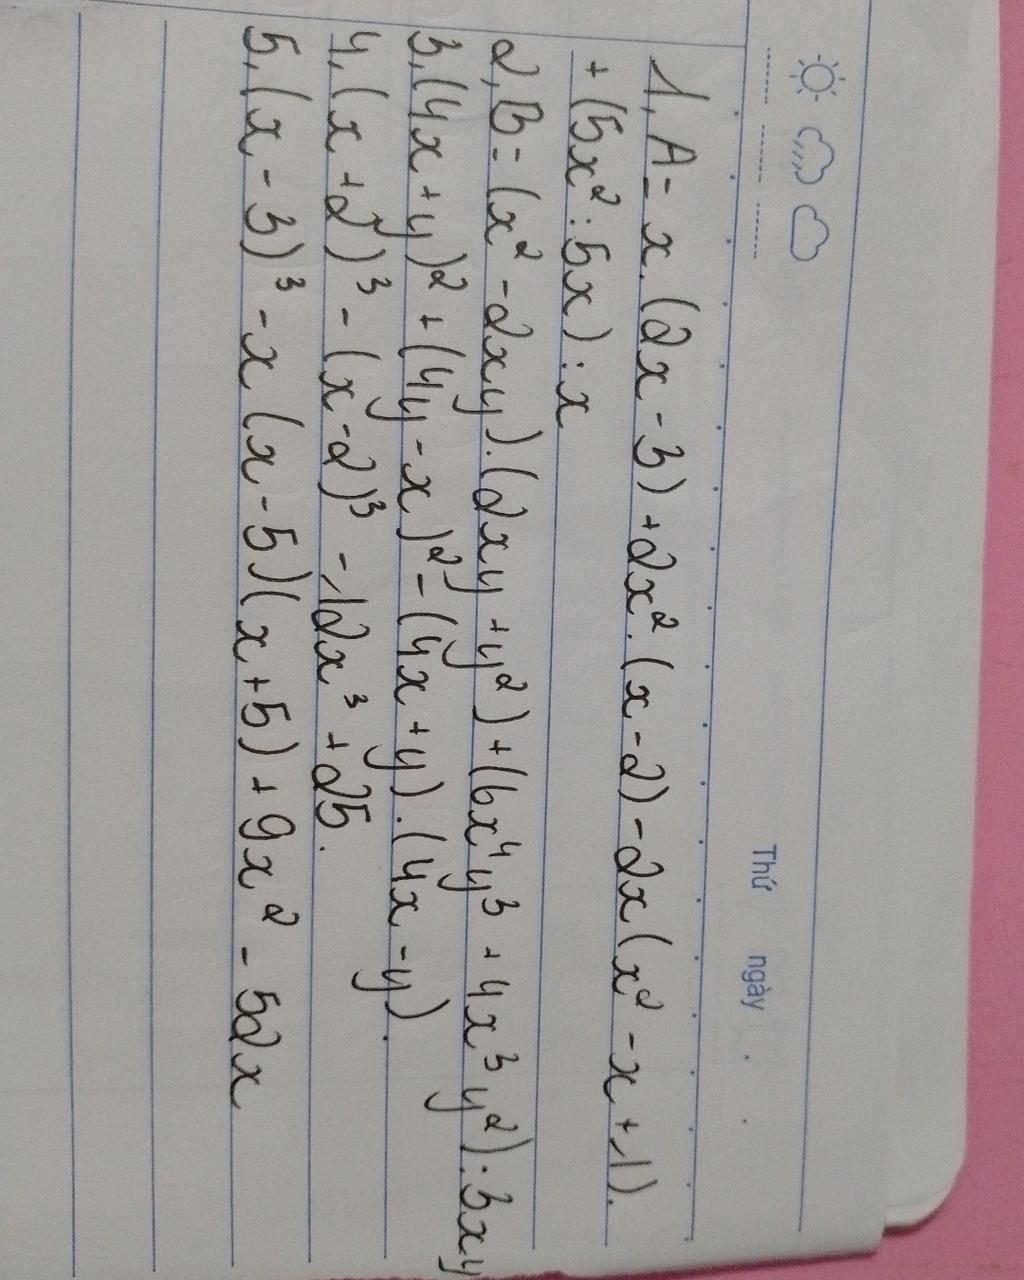 Thứ ngày
1, A = x.(2x - 3) + 2x².(x - 2) - 2x(x² - x + 1).
+ (5x² : 5x) : x
2, B = (x² - 2xy).(2xy + y²) + (6x⁴y³ + 4x³y²) : 3xy
3, (4x + y)² + (4y - x)² - (4x + y).(4x - y).
4, (x + 2)³ - (x - 2)³ - 12x³ + 25.
5, (x - 3)³ - x(x - 5)(x + 5) + 9x² - 52x